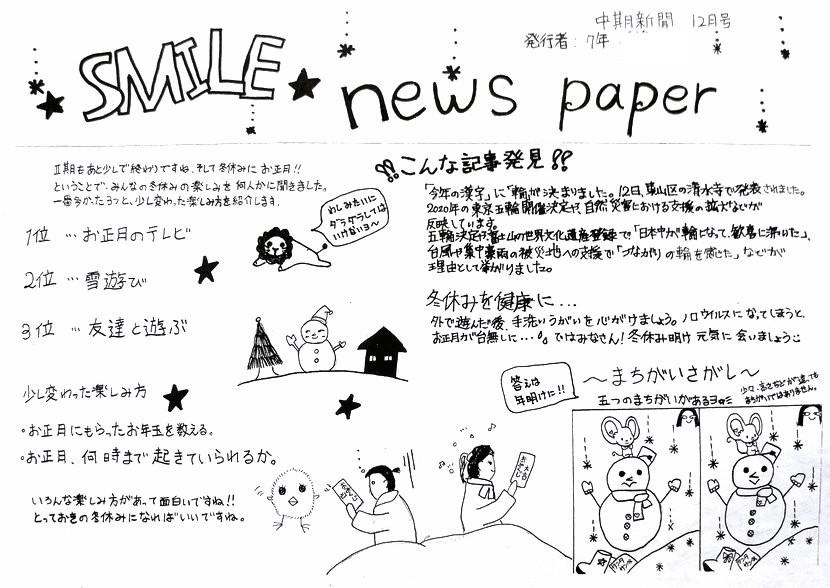 中期新聞 12月号
発行者: 7年
SMILE
news paper
Ⅱ期もあと少しで終わりですね。そして冬休みに お正月!!
ということで、みんなの冬休みの楽しみを 何人かに聞きました。
一番多かったうつと、少し変わった楽しみ方を紹介します。
1位 … お正月のテレビ
2位 … 雪遊び
3位 … 友達と遊ぶ
少し変わった楽しみ方
・お正月にもらったお年玉を数える。
・お正月、何時まで起きていられるか。
いろんな楽しみ方があって面白いですね!!
とっておきの冬休みになればいいですね。
わしみたいに
ダラダラしては
いけないヨ〜
!!こんな記事発見!!
「今年の漢字」に「輪」が決まりました。12日、東山区の清水寺で発表されました。
2020年の東京五輪開催決定や、自然災害における支援の拡大などが
反映しています。
五輪決定や、富士山の世界文化遺産登録で「日本中が輪になって、歓喜に沸いた」、
台風や集中豪雨の被災地への支援で「つながりの輪を感じた」などが
理由として挙がりました。
冬休みを健康に…
外で遊んだ後、手洗いうがいを心がけましょう。ノロウイルスになってしまうと、
お正月が台無しに…。ではみなさん!冬休み明け 元気に 会いましょう
答えは
年明けに!!
〜まちがいさがし〜
五つのまちがいがあるヨ
少々、高さなどが違っても
まちがいではありません。